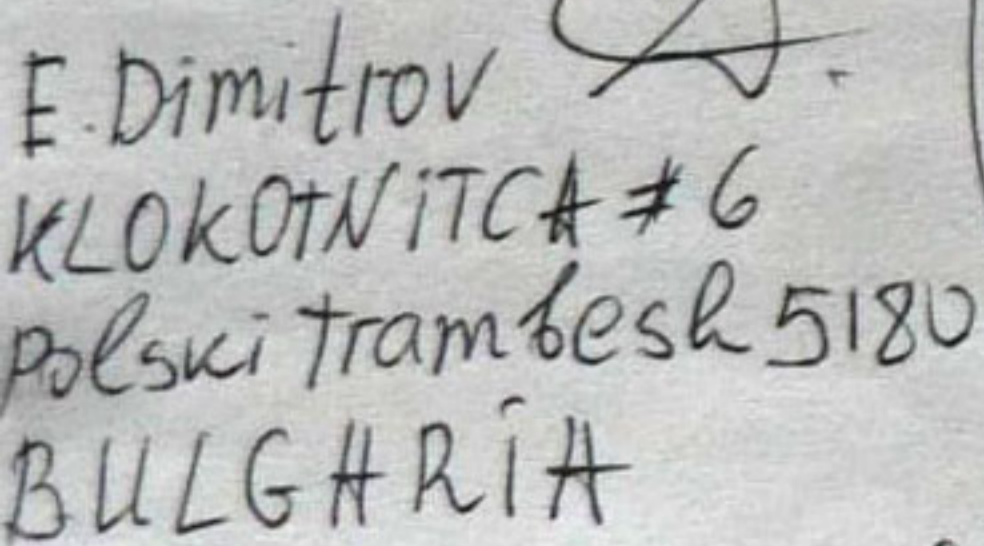 E. Dimitrov
KLOKOTNiTCA # 6
Polski trambesh 5180
BULGARiA